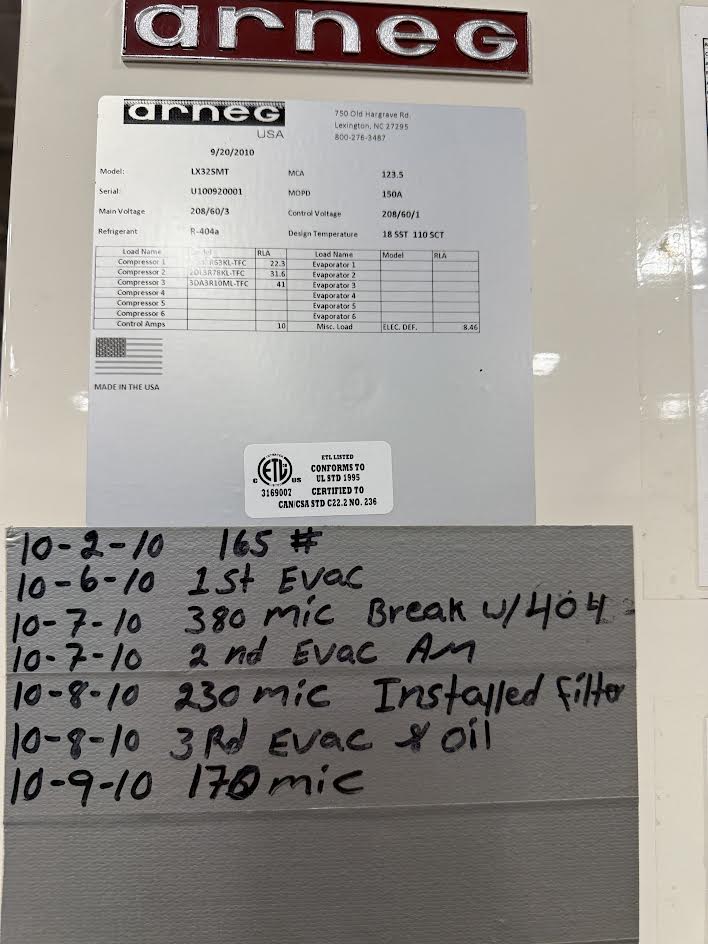 arneG
arneG
USA
750 Old Hargrave Rd.
Lexington, NC 27295
800-276-3487
9/20/2010
Model: LX32SMT MCA 123.5
Serial: U100920001 MOPD 150A
Main Voltage 208/60/3 Control Voltage 208/60/1
Refrigerant R-404a Design Temperature 18 SST 110 SCT
Load Name RLA Load Name Model RLA
Compressor 1 22.3 Evaporator 1
Compressor 2 31.6 Evaporator 2
Compressor 3 3DA3R10ML-TFC 41 Evaporator 3
Compressor 4 Evaporator 4
Compressor 5 Evaporator 5
Compressor 6 Evaporator 6
Control Amps 10 Misc. Load ELEC. DEF. 8.46
MADE IN THE USA
ETL LISTED
CONFORMS TO
UL STD 1995
C ETL US
3169007 CERTIFIED TO
CAN/CSA STD C22.2 NO. 236
10-2-10 165 #
10-6-10 1st Evac
10-7-10 380 mic Break w/404
10-7-10 2nd Evac Am
10-8-10 230 mic Installed filter
10-8-10 3Rd Evac & Oil
10-9-10 170 mic